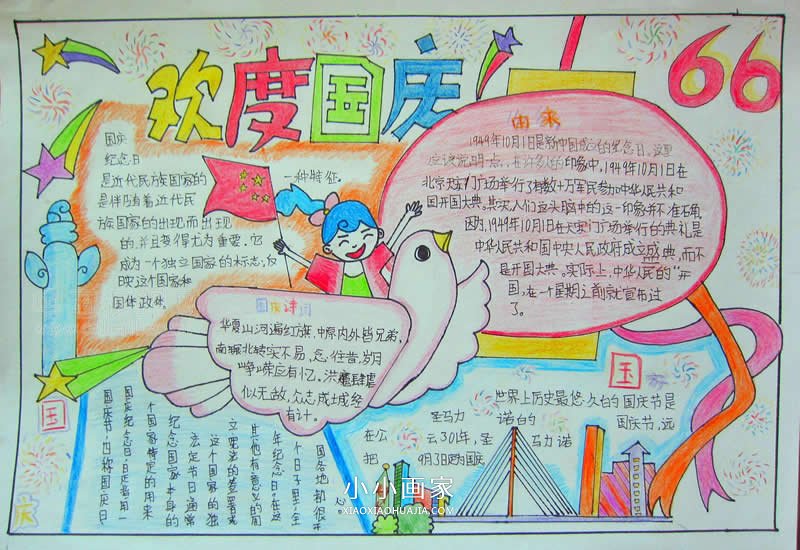 欢度国庆
66
国庆
纪念日
是近代民族国家的
一种特征,
是伴随着近代民
族国家的出现而出现
的,并且变得尤为重要。它
成为一个独立国家的标志,反
映这个国家和
国体政体。
由来
1949年10月1日是新中国成立的纪念日。这里
应该说明一点,在许多人的印象中,1949年10月1日在
北京天安门广场举行了有数十万军民参加中华人民共和
国开国大典。其实,人们这头脑中的这一印象并不准确。
因为,1949年10月1日在天安门广场举行的典礼是
中华人民共和国中央人民政府成立盛典,而不
是开国大典。实际上,中华人民的"开
国,在一个星期之前就宣布过
了。
国庆诗词
华夏山河遍红旗,中原内外皆兄弟,
南璀北转实不易,忘住昔岁月
峥嵘应有忆。洪
似无敌,众志成城终
有计。
国
家
世界上历史最悠久的国庆节是
圣马力
诺的
国庆节,远
在公
云301年,圣
马力诺
把
9月3日定为国庆
国
庆
国庆纪念日
国庆节,也称国庆日
个国家特定的用来
纪念国家本身的
法定节日通常
这个国家的独
年纪念日。在这
个日子里,全
国各地都很开
小小画家
XIAOXIAOHUAJIA.COM